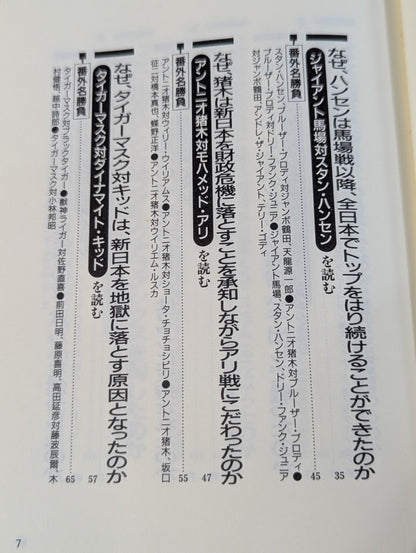 なぜ、ハンセンは馬場戦以降、全日本でトップをはり続けることができたのか
ジャイアント馬場対スタン・ハンセン を読む 35
番外名勝負 45
スタン・ハンセン、ブルーザー・ブロディ対ジャンボ鶴田、天龍源一郎●アントニオ猪木対ブルーザー・ブロディ●
ブルーザー・ブロディ対ドリー・ファンク・ジュニア●ジャイアント馬場、スタン・ハンセン、ドリー・ファンク・ジュニア
対ジャンボ鶴田、アンドレ・ザ・ジャイアント、テリー・ゴディ
なぜ、猪木は新日本を財政危機に落とすことを承知しながらアリ戦にこだわったのか
アントニオ猪木対モハメッド・アリ を読む 47
番外名勝負 55
アントニオ猪木対ウィリー・ウイリアムス●アントニオ猪木対ショータ・チョチョシビリ●アントニオ猪木、坂口
征二対橋本真也、蝶野正洋●アントニオ猪木対ウイリエム・ルスカ
なぜ、タイガーマスク対キッドは、新日本を地獄に落とす原因となったのか
タイガーマスク対ダイナマイト・キッド を読む 57
番外名勝負 65
タイガーマスク対ブラックタイガー●獣神ライガー対佐野直喜●前田日明、藤原喜明、高田延彦対藤波辰爾、木
村健悟、越中詩郎●タイガーマスク対小林邦昭
7